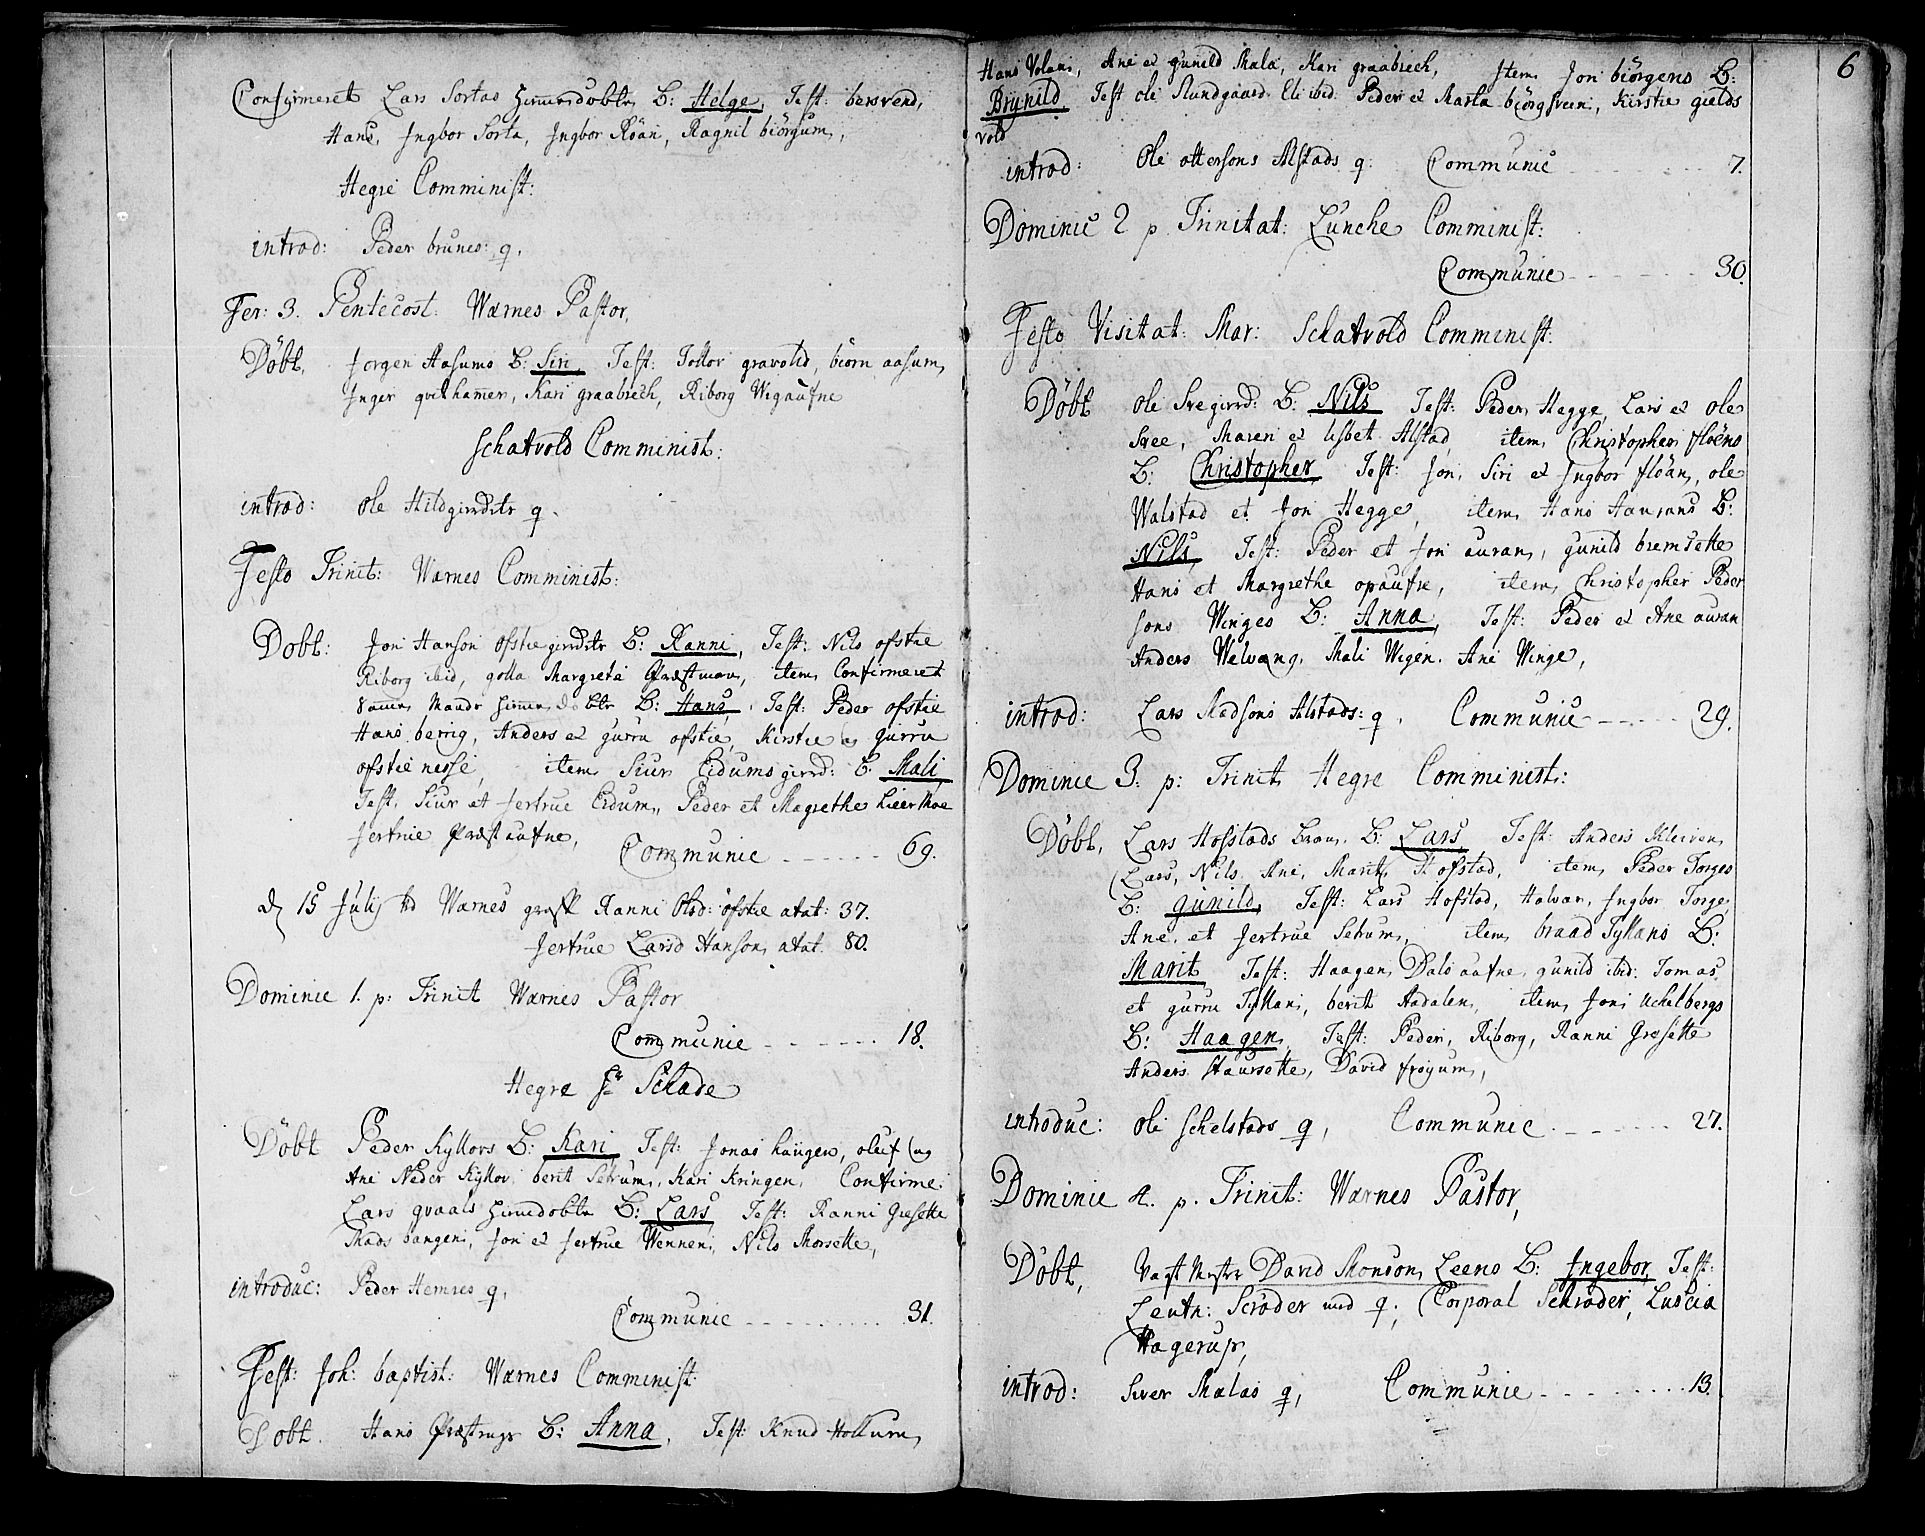 Confirmeret Lars Sortas hiemedöbte B: Helge, Test: bersvend,
Hans, Ingbor Sorta, Ingbor Röan, Ragnil biörgum,
Hegre Comminist:
introd: Peder brunes: q.
Fer: 3. Pentecost: Wærnes Pastor,
Döbt, Jorgen Aasums B: Siri, Test: Tollor gravolid, biörn aasum,
Inger qvithamer, Kari graabrech, Riborg Wigaufne
Schatvold Comminist:
introd: Ole Hildgirrdets q.
Festo Trinit: Wærnes Comminist:
Döbt: Jon Hanson ofstiegirrdets B: Ranni, Test: Nils ofstie
Riborg ibid, golla Margrete Præstmoen, item Confirmeret
B: Hans, Test: Peder ofstie
Hans berrig, Anders et gurru ofstie, Kirstie og gurru
ofstie nesse, item Siur Eidums girrd: B: Mali,
Test. Siur et Jertrue Eidum, Peder et Magrethe Lieermoe
Jertrue Præstaufne, Communic ------ 69.
d 15 Julij Wærnes Ranni Olsd: ofstie ætat: 37.
Jertrue Larsd Hanson, ætat. 80.
Dominic 1. p: Trinit Wærnes Pastor
Communic ------- 18.
Hegre Hr Schade
Döbt Peder Kyllovs B: Kari, Test: Jonas haugen, oluf og
Ane Neder Kyllov, berit Setrum, Kari Kringen, Confirme:
Lars graals hiemdöbte B: Lars, Test: Ranni Gresette
Mads bangen, Jon et Jertrue Wennen, Nils Morsette,
introduc: Peder Hemres q,
Communic --------- 31.
Fest: Joh: baptist: Wærnes Comminist.
Döbt. Hans B: Anna, Test: Knud Hollum,
6
Hans Volan, Ane et gunild Mæla, Kari graabrech, Item Jon biörgens B:
Brynild, Test ole Slundgaard. Eli ibid. Peder et Marta biörgsvein, Kirstie gields
vold
introd: Ole ottersons Alstads q: Communic ------- 7.
Dominic 2 p Trinitat: Lunche Comminist:
Communic ------- 30.
Festo Visitat: Mar: Schatvold Comminist:
Döbt Ole Sregirrd: B: Nils Test: Peder Hegge, Lars et ole
Sree, Maren et Lisbet Alstad, item, Christopher flöens
B: Christopher, Test: Jon, Siri et Ingbor flöan, ole
Walstad et Jon Hegge, item, Hans Aurans B:
Nils, Test: Peder et Jon auran, gunild bremsette
Hans et Margrethe opaufne, item, Christopher Peder
sons Winges B: Anna, Test: Peder et Ane auran
Anders Welvang. Mali Wigen. Ane Winge,
introd: Lars Madsons Alstads: q. Communic ------ 29.
Dominic 3. p: Trinit, Hegre Comminist:
Döbt, Lars Hofstads B: Lars Test: Anders Kleiven,
Lars, Nils. Ane, Marit, Hofstad, item, Peder Forges
B: gunild, Test: Lars Hofstad, Halvar, Ingbor Forge,
Ane. et Jertrue Setrum, item, braad Tyllans B:
Marit Test: Haagen, Dalsaufne, gunild ibid: Tomas
et gurru Tyllan, berit Aadalen, item, Jon Uchelbergs
B: Haagen, Test: Peder, Riborg, Ranni Gresette
Anders Staursette, David froyum,
introduc: Ole Schelstads q, Communic ------- 27.
Dominic 4. p. Trinit: Wærnes Pastor,
Döbt, Vagt Mester David Monson, Leens B: Ingebor, Test:
Leutn: Scröder med q:, Corporal Schröder, Luscia
Hagerup,
introd: Siver Mælas q, Communic -------- 13.